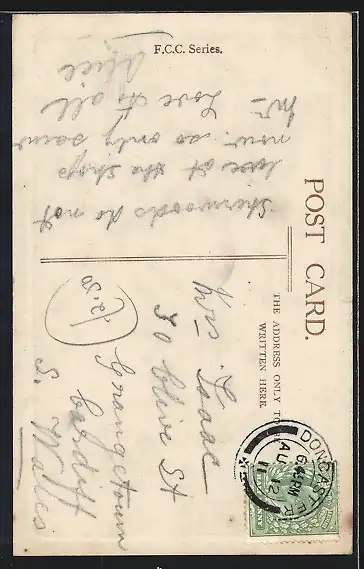 F.C.C. Series.
POST CARD.
THE ADDRESS ONLY TO BE
WRITTEN HERE.
Sherwoods do not
love at the shops
now. so only same
Love to all
Alice
Mrs Isaac
30 Clive St
Grangetown
Cardiff
S. Wales
2.50
DONCASTER
6 45 PM
AU 12
11